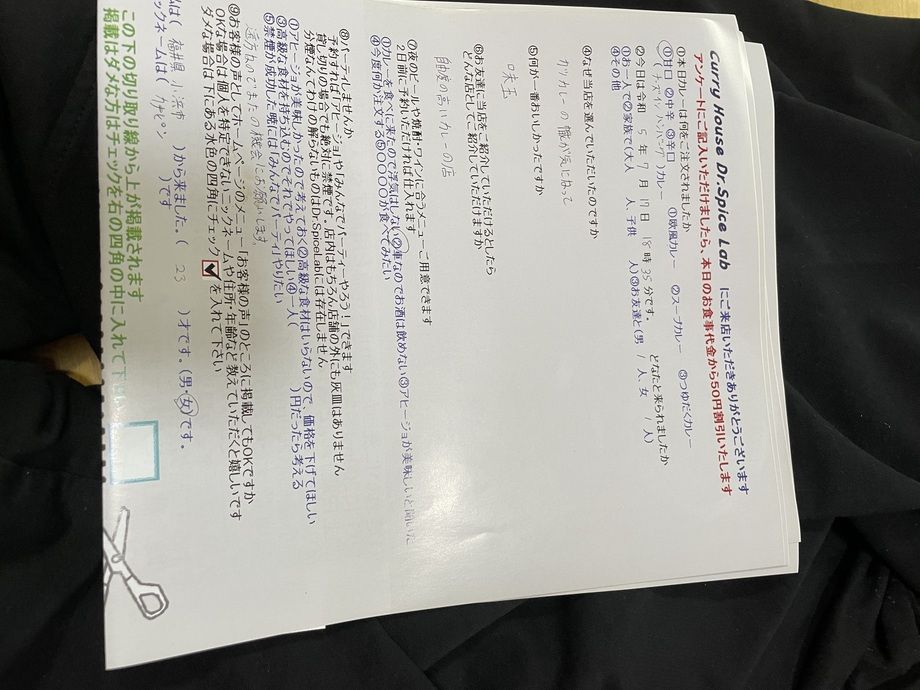 Curry House Dr.Spice Lab にご来店いただきありがとうございます
アンケートにご記入いただけましたら、本日のお食事代金から50円割引いたします
①本日カレーは何をご注文されましたか
①甘口 ②中辛 ③辛口 ①欧風カレー ②スープカレー ③つゆだくカレー
(チーズインハンバーグ)カレー
②今日は令和 5 年 7 月 17 日 18 時 35 分です。 どなたと来られましたか
①お一人で②ご家族で(大人 人、子供 人)③お友達と(男 1 人、女 1 人)
④その他
④なぜ当店を選んでいただいたのですか
カツカレーの
⑤何が一番おいしかったですか
味玉
⑥お友達に当店をご紹介していただけるとしたら
どんな店としてご紹介していただけますか
自由度の高いカレーの店
⑦夜のビールや焼酎・ワインに合うメニューご用意できます
2日前に予約いただければ仕入れます
①カレーを食べに来たので浮気はしない②車なのでお酒は飲めない③アヒージョが美味しいと聞いた
④今度何か注文する⑤〇〇〇〇が食べてみたい
⑧パーティしませんか
予約すれば「アヒージョ」や「みんなでパーティーやろう!」できます
貸し切りの場合でも絶対に禁煙です。店内はもちろん店舗の外にも灰皿はありません
分煙なんてわけの解らないものはDr.SpiceLabには存在しません
①アヒージョが美味しかったので考えておく②高級な食材はいらないので、価格を下げてほしい
③高級な食材を持ち込むのでそれでやってほしい④一人( )円だったら考える
⑤禁煙が成功した暁には「みんなでパーティ」やりたい
またの機会にお願いします
⑨お客様の声としてホームページのメニュー「お客様の声」のところに掲載してもOKですか
OKな場合は個人を特定できないニックネームや住所・年齢など教えていただくと嬉しいです
ダメな場合は下にある水色の四角にチェック✓を入れて下さい
私は( 福井県 小浜市 )から来ました。( 23 )才です。(男・女)です。
ックネームは( カピパン )です
この下の切り取り線から上が掲載されます
掲載はダメな方はチェックを右の四角の中に入れて下